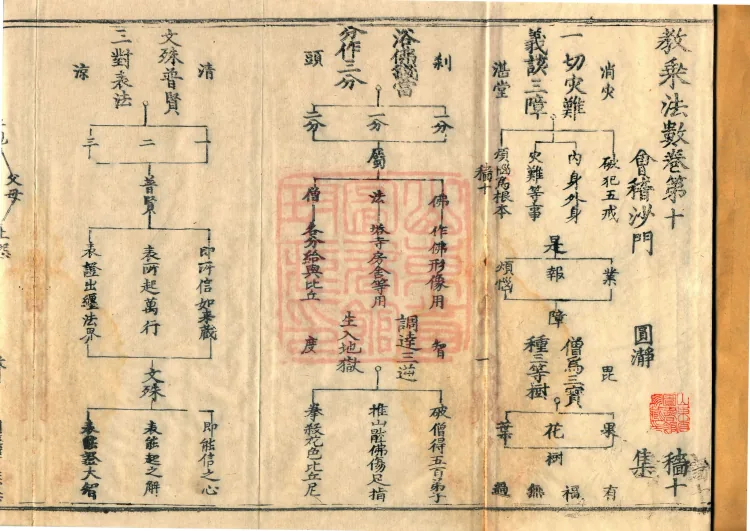 教乘法數卷第十
會稽沙門 圓瀞 集
穡十
消灾
一切灾難
義該三障
湛堂
破犯五戒
內身外身
灾難等事
煩惱爲根本
是
業
報
煩惱
障
毘
僧爲三寶
種三等樹
果
花
葉
樹
有
福
無
過
穡十
一
剎
浴佛錢當
分作三分
頭
一分
一分
二分
屬
佛 作佛形像用
法 塔寺房舍等用
僧 各分給與比丘
智
調達三逆
生入地獄
度
破僧得五百弟子
推山壓佛傷足指
拳殺花色比丘尼
清
文殊普賢
三對表法
涼
一
二
三
普賢
即所信如來藏
表所起萬行
表證出纏法界
文殊
即能信之心
表能起之解
表能證大智
父母